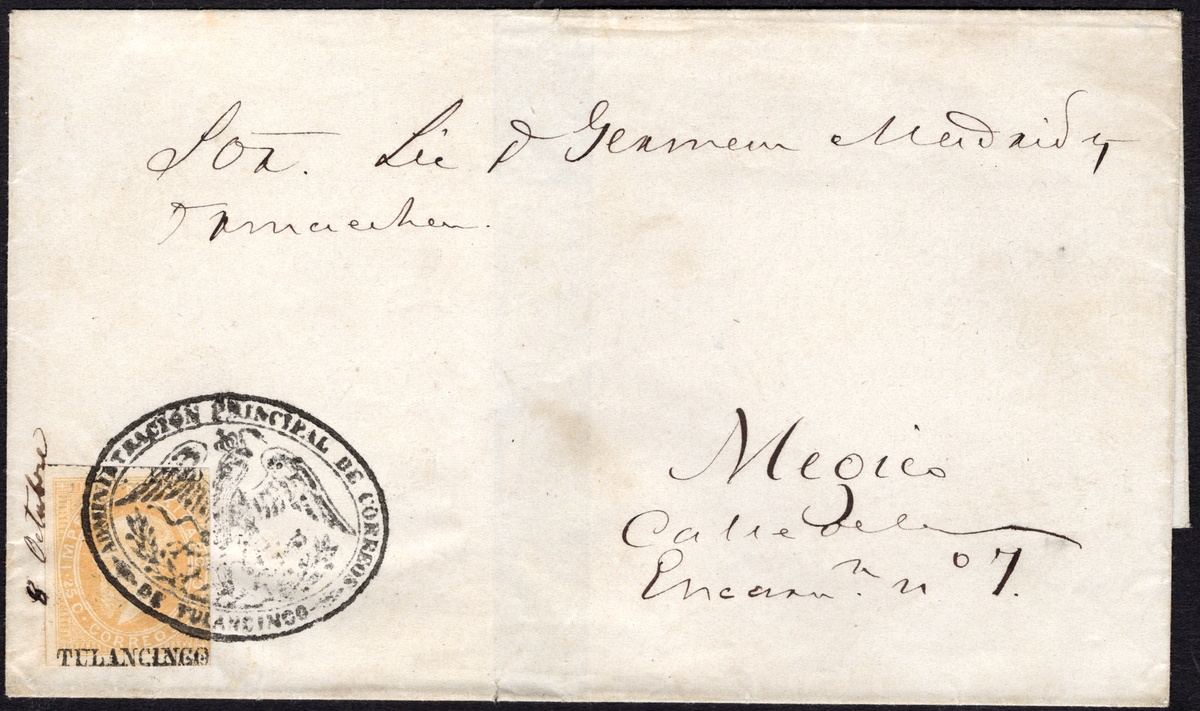 Sor. Lic D German Madrid y
Ormachea.
Megico
Calle de la
Encarn.n no 7.
8 Octubre
ADMINISTRACION PRINCIPAL DE CORREOS
DE TULANCINGO
IMP
CORREO
TULANCINGO